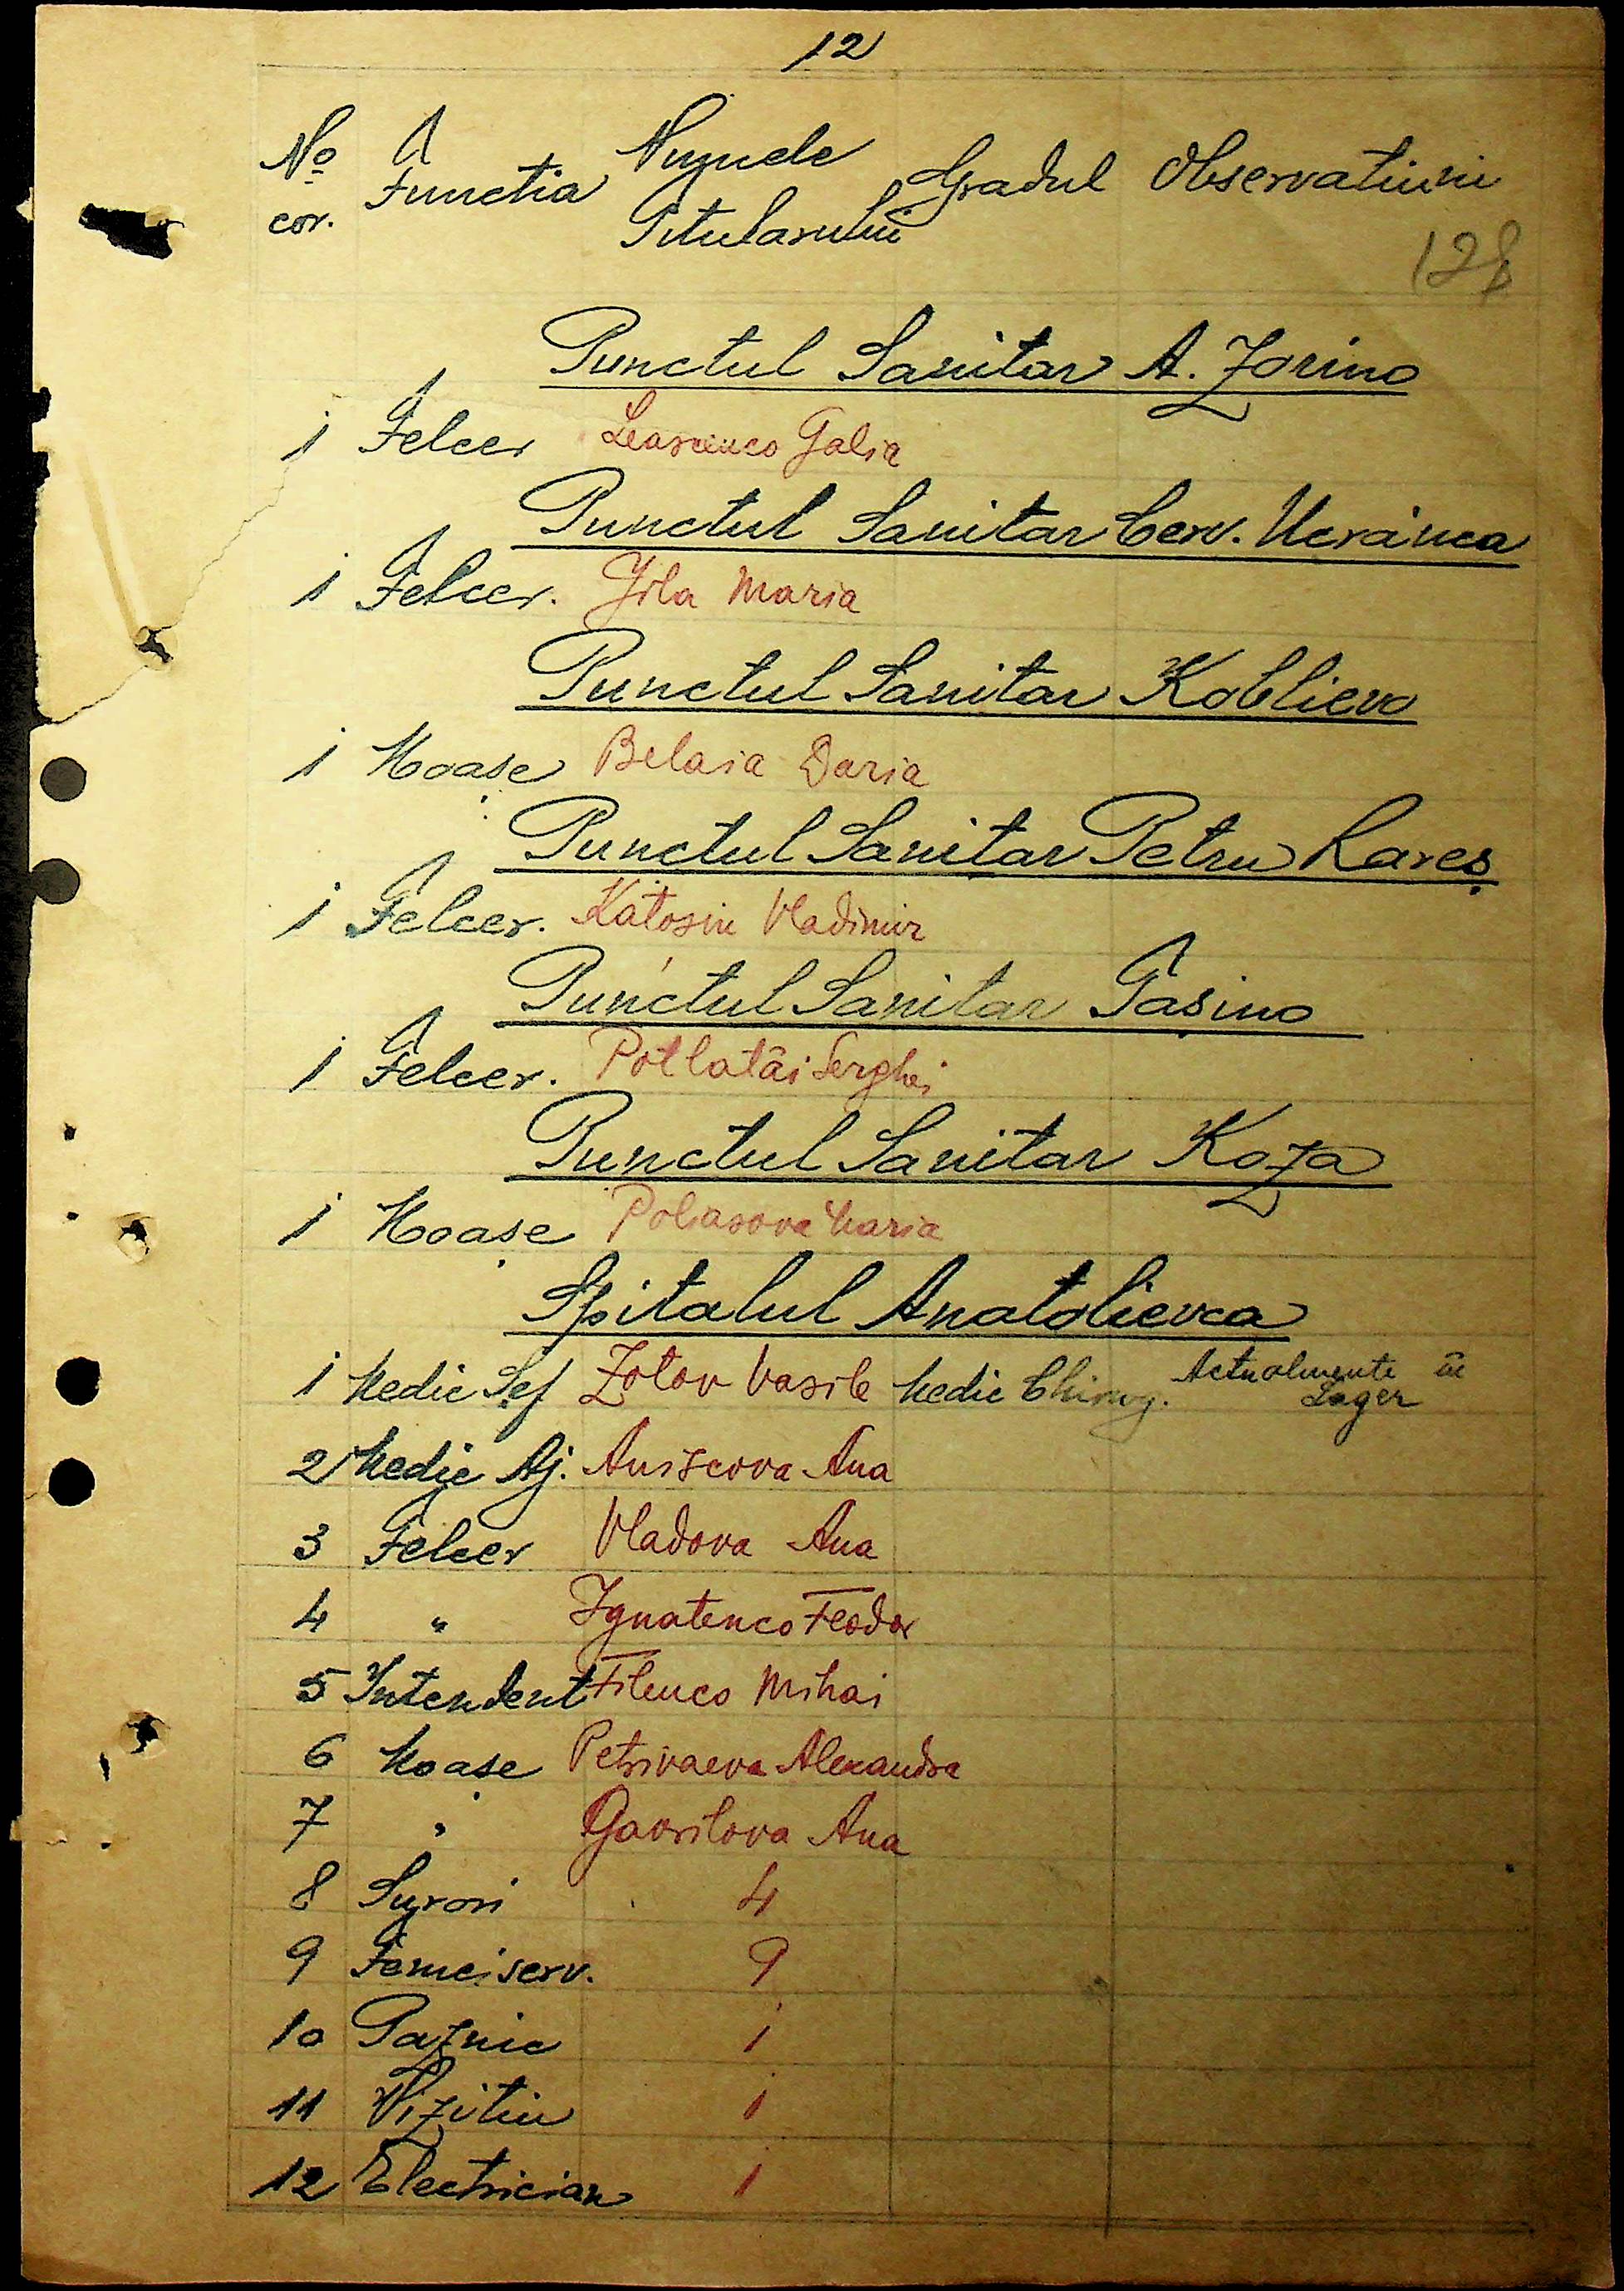 12
No cor. Functia Numele Titularului Gradul Observatiuni
128
Punctul Sanitar A. Zorino
1 Felcer Leascenco Galia
Punctul Sanitar Cerv. Ucrainca
1 Felcer. Jila Maria
Punctul Sanitar Koblievo
1 Moașe Belaia Daria
Punctul Sanitar Petru Rareș
1 Felcer. Katosin Vladimir
Punctul Sanitar Tașino
1 Felcer. Potlatâi Serghei
Punctul Sanitar Koza
1 Moașe Poliasova Maria
Spitalul Anatolievca
1 Medic Șef Zotov Vasile Medic Chirurg. Actualmente în Lager
2 Medic Aj. Aniscova Ana
3 Felcer Vladova Ana
4 " Ignatenco Feodor
5 Intendent Filenco Mihai
6 Moașe Petrivaeva Alexandra
7 " Gavrilova Ana
8 Surori 4
9 Femei serv. 9
10 Paznic 1
11 Vizitiu 1
12 Electrician 1